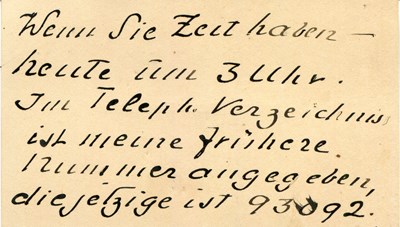 Wenn Sie Zeit haben –
heute um 3 Uhr.
Im Teleph. Verzeichniss
ist meine frühere
Nummer angegeben,
die jetzige ist 93092.